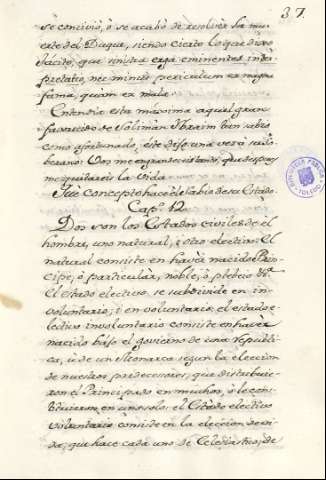 37.
se conciviò, ò se acabò de resolver la mu-
erte del Duque, siendo cierto lo que dixo
Tácito, que sinistra erga eminentes inter-
pretatio, nec minus periculum ex magna
fama, quam ex mala.
Entendia esta máxima aquel gran
favorecido de Soliman Ibraim tan sabio
como afortunado, este dijo una vez à su so-
berano: Vos me engrandeceis tanto, que despues
me quitareis la vida.
Que concepto hace el Sabio de su Estado.
Cap.º 12.
Dos son los Estados civiles de el
hombre, uno natural, i otro electivo. El
natural consiste en haver nacido Prin-
cipe, ò particular, noble, ò plebeio &ª.
El estado electivo se subdivide en in-
voluntario, i en voluntario; el estado e-
lectivo involuntario consiste en haver
nacido bajo el govierno de una republi-
ca, ù de un Monarca segun la eleccion
de nuestros predecesores, que distribuie-
ron el Principado en muchos, ò le con-
stituieron en uno solo: el Estado electivo
voluntario consiste en la eleccion de vi-
da, que hace cada uno de Eclesiastico, de
BIBLIOTECA PUBLICA
TOLEDO